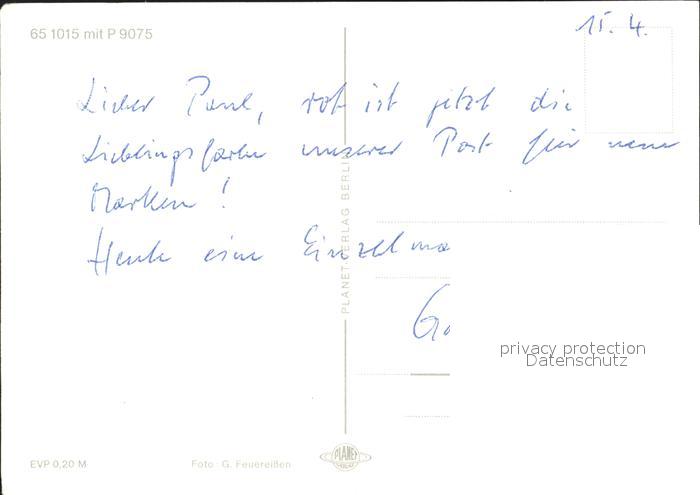 65 1015 mit P 9075
15. 4.
Lieber Paul, rot ist jetzt die
Lieblingsfarbe unserer Post für neue
Marken!
Heute eine Einzelma
G.
PLANET-VERLAG BERLIN
privacy protection
Datenschutz
EVP 0,20 M
Foto: G. Feuereißen
PLANET